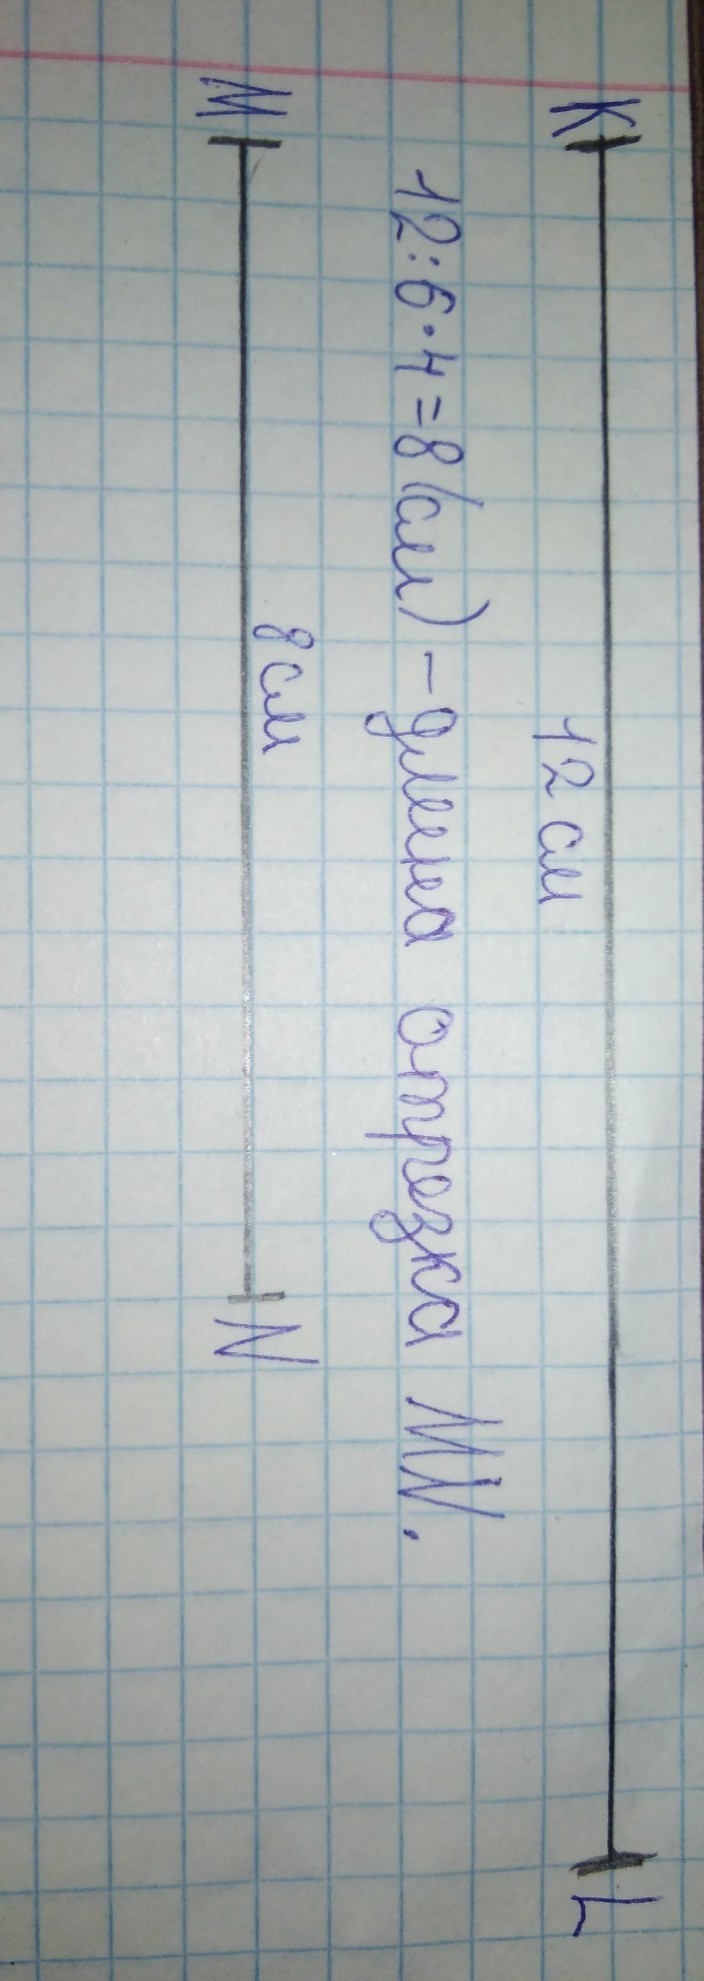 K L
12 см
12:6·4=8(см)-длина отрезка MN.
M N
8 см